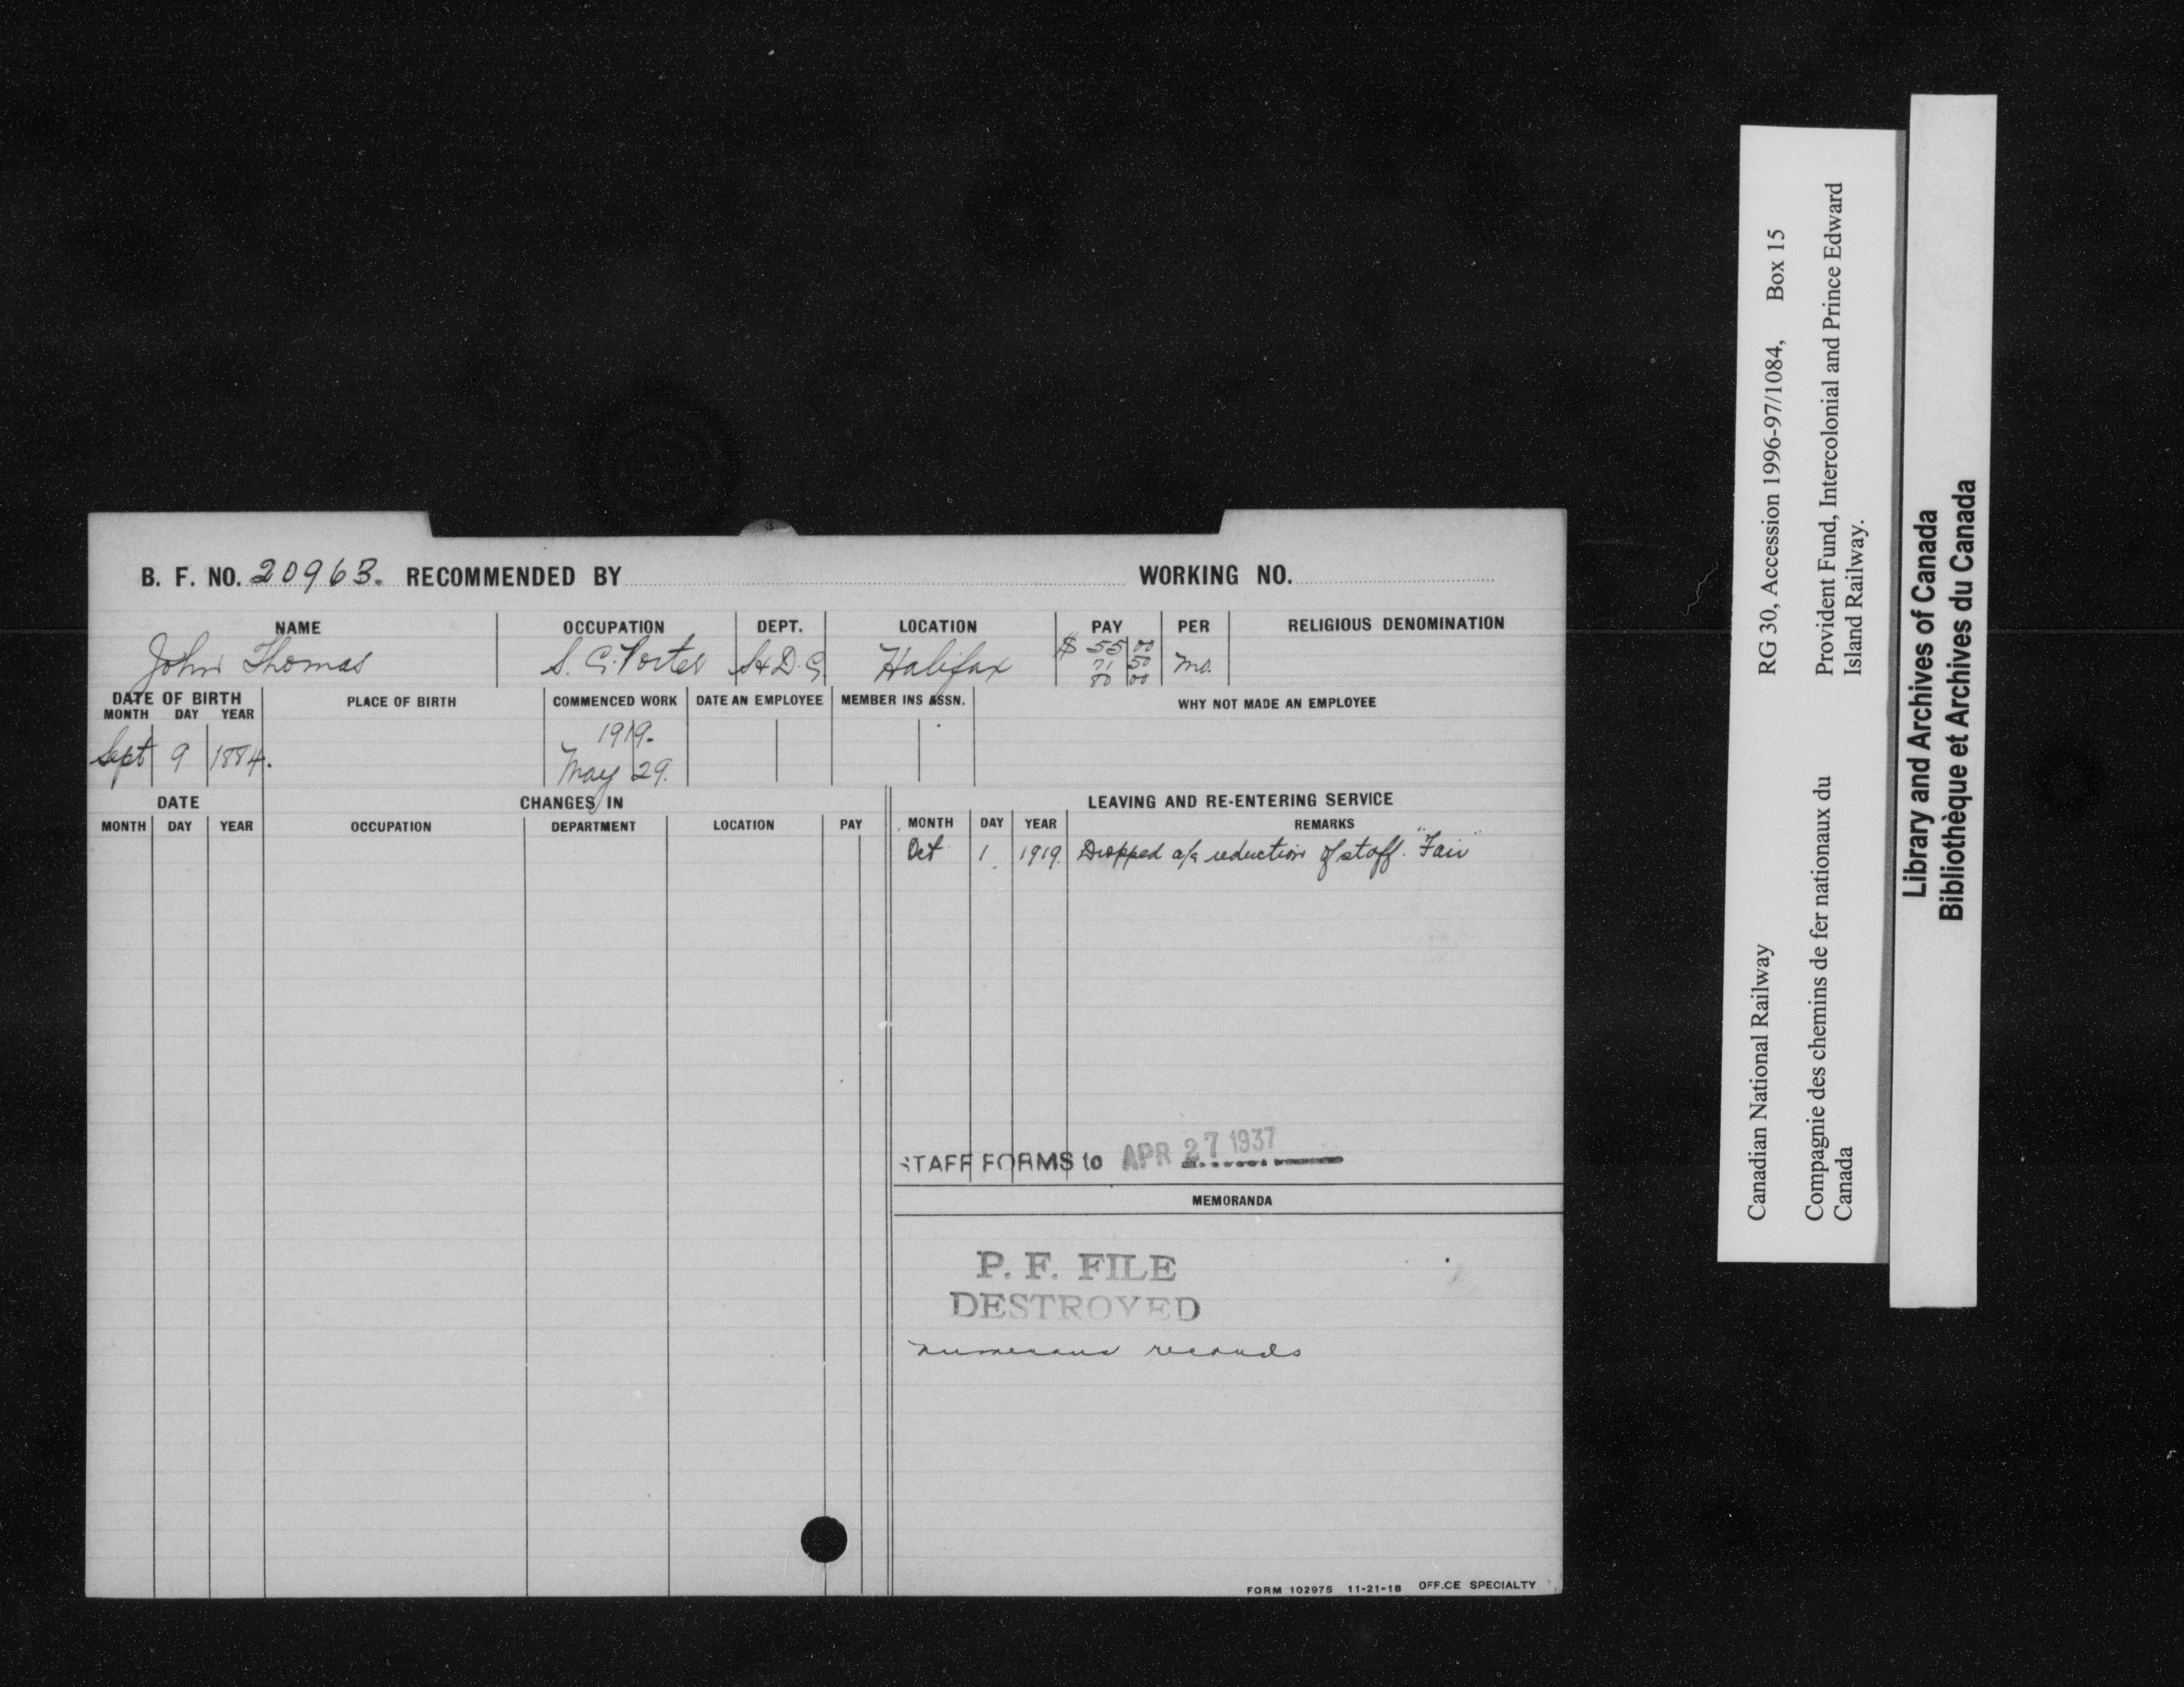 3
B. F. NO. 20963. RECOMMENDED BY WORKING NO.
NAME OCCUPATION DEPT. LOCATION PAY PER RELIGIOUS DENOMINATION
John Thomas S. C. Porter S+D.C Halifax $ 55 00 Mo.
71 50
80 00
DATE OF BIRTH PLACE OF BIRTH COMMENCED WORK DATE AN EMPLOYEE MEMBER INS ASSN. WHY NOT MADE AN EMPLOYEE
MONTH DAY YEAR
1919.
Sept 9 1884. May 29.
DATE CHANGES IN LEAVING AND RE-ENTERING SERVICE
MONTH DAY YEAR OCCUPATION DEPARTMENT LOCATION PAY MONTH DAY YEAR REMARKS
Oct 1 1919. Dropped a/c reduction of staff. "Fair"
STAFF FORMS to APR 27 1937
MEMORANDA
P. F. FILE
DESTROYED
numerous records
FORM 102975 11-21-18 OFFICE SPECIALTY
Canadian National Railway RG 30, Accession 1996-97/1084, Box 15
Compagnie des chemins de fer nationaux du Provident Fund, Intercolonial and Prince Edward
Canada Island Railway.
Library and Archives of Canada
Bibliothèque et Archives du Canada